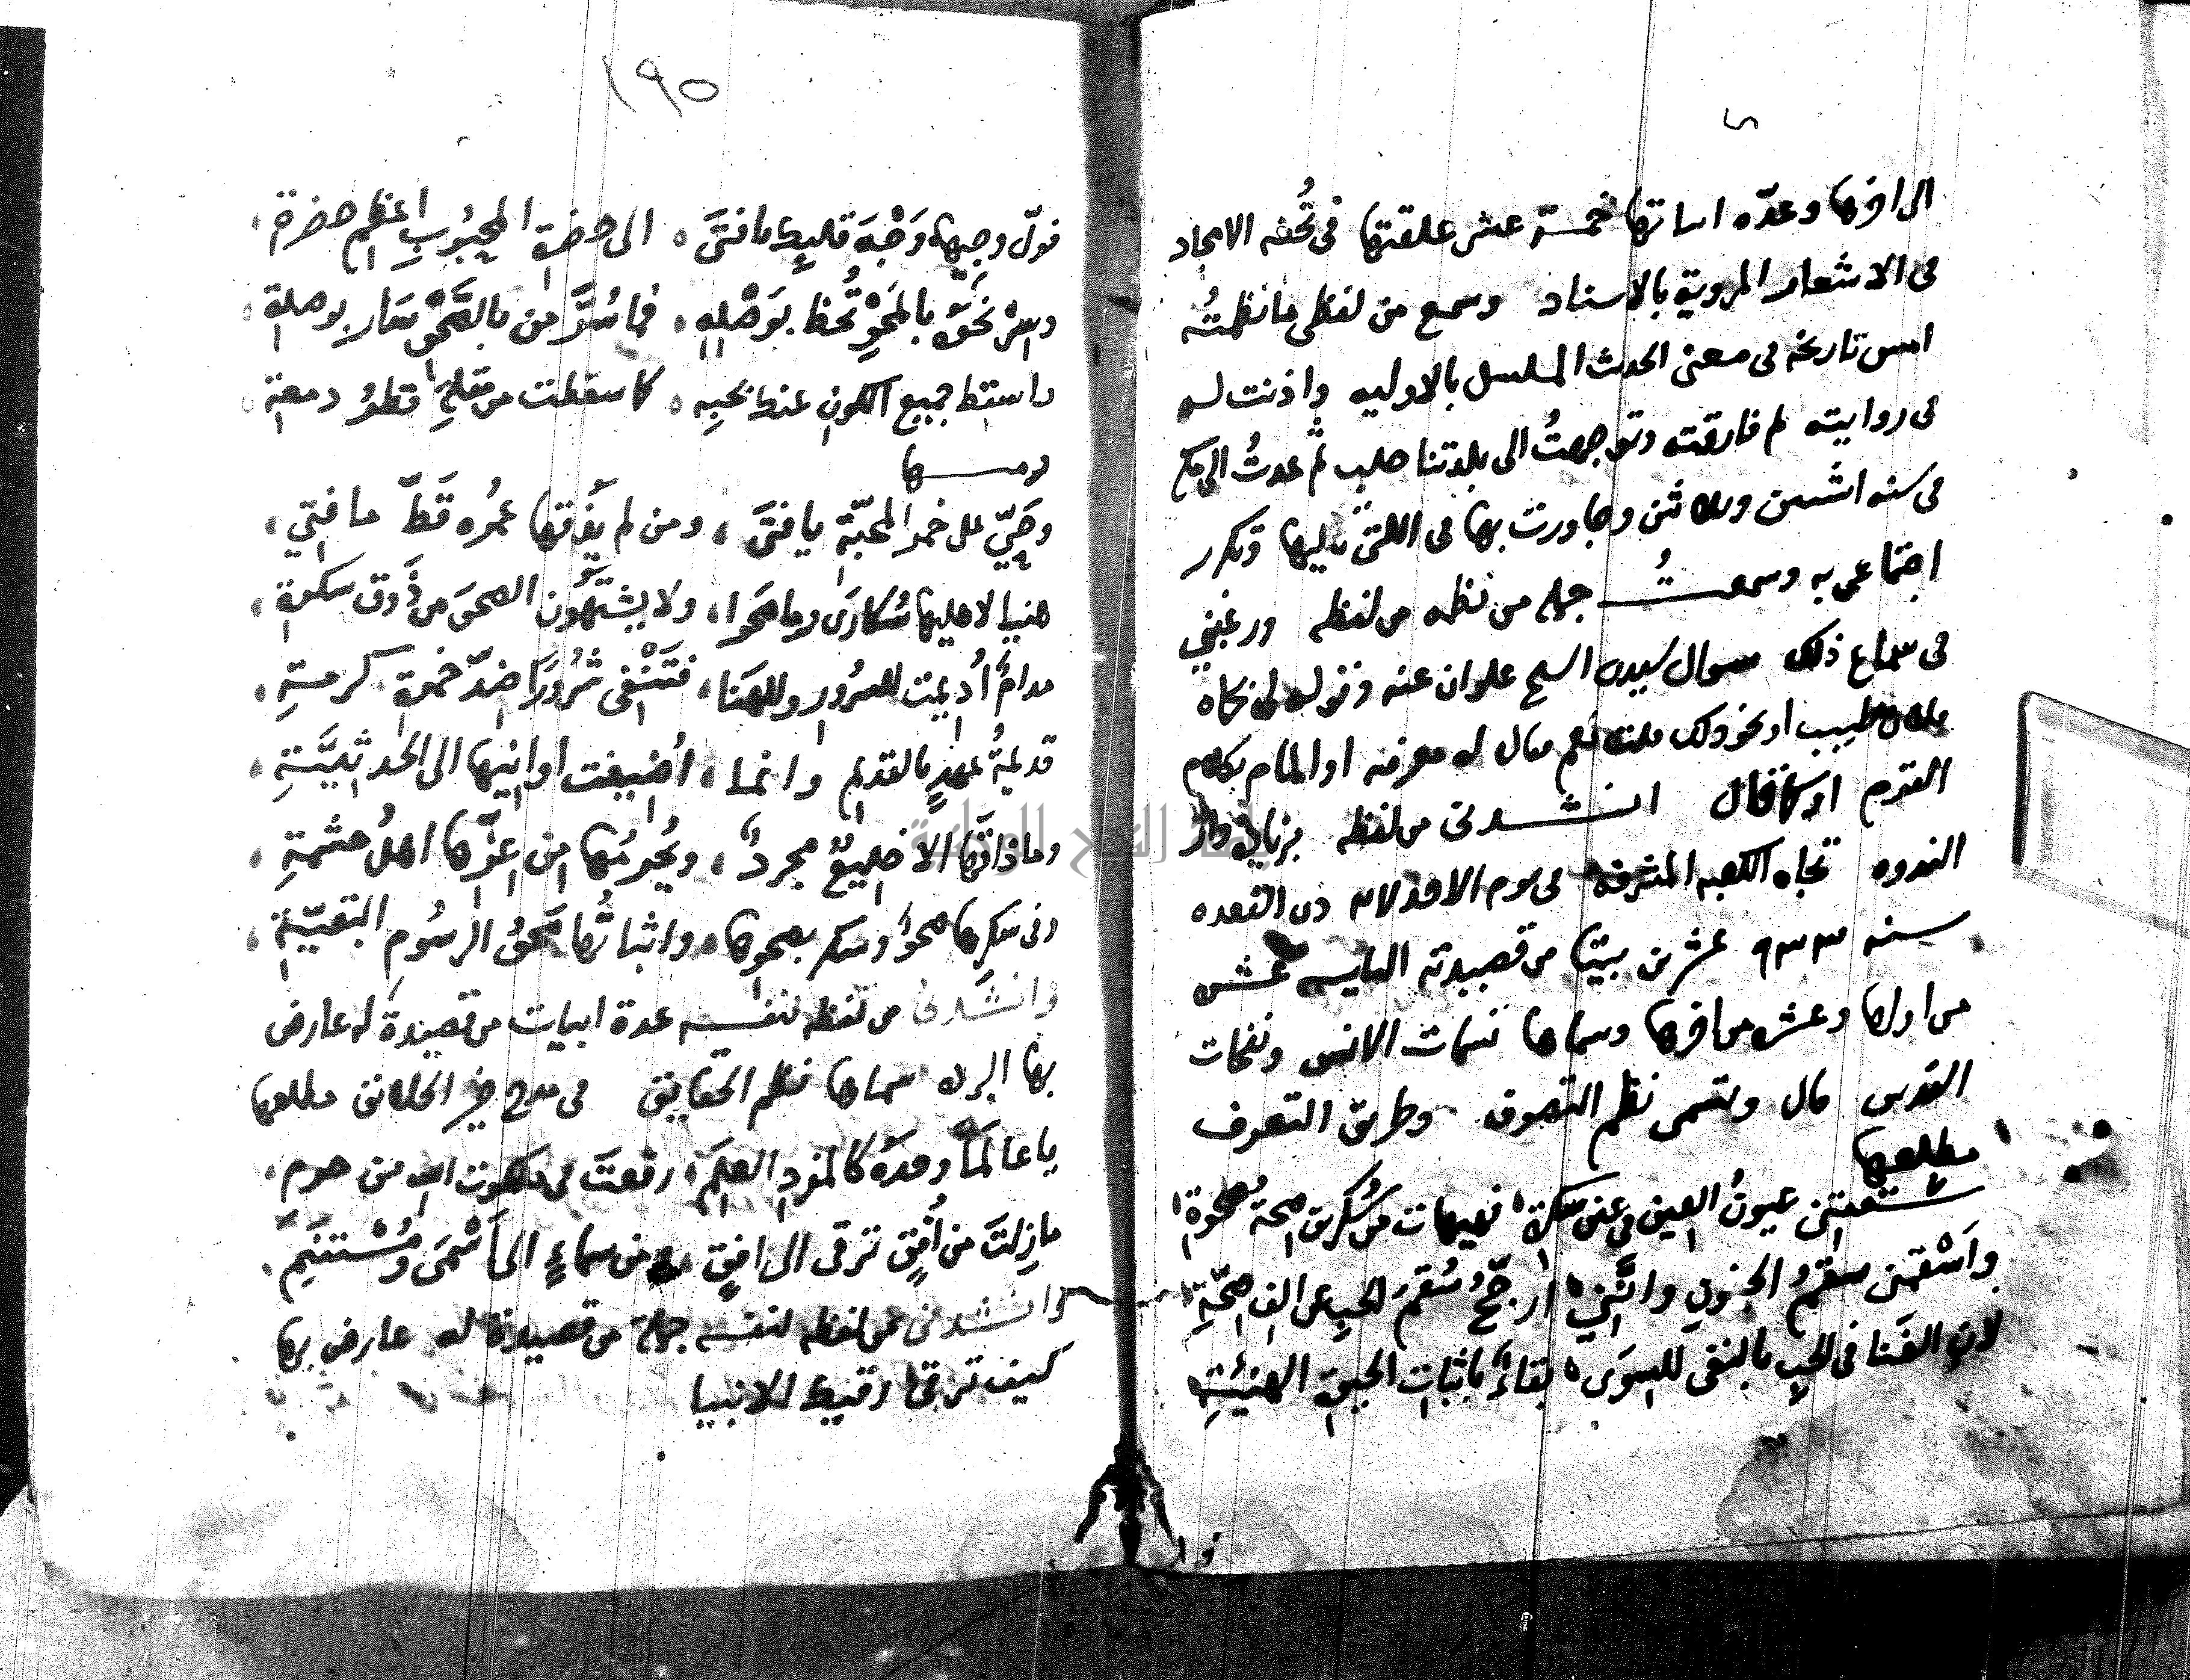 الى اخرها وعدة ابياتها خمسة عشر علقتها في تحفه الامجاد
في الاشعار المروية بالاسناد وسمع من لفظي ما نظمتُه
امس تاريخه في معنى الحديث المسلسل بالاوليه واذنت له
في روايته ثم فارقته وتوجهتُ الى بلدتنا حلب ثم عدتُ الى مكه
في سنه اثنين وثلاثين وجاورت بها في اللتي تليها وتكرر
اجتماعي به وسمعتُ جمله من نظمه من لفظه ورغبني
في سماع ذلك سوال سيدي الشيخ علوان عنه وقوله لي
طيب او نحو ذلك فقلت نعم فقال له معرفه او المام بكلام
القوم او كما قال انشدني من لفظه
الندوه تجاه الكعبه المشرفه في يوم الاحد ذي القعده
سنه ٩٣٣ عشرين بيتا من قصيدته التاييه عشره
من اولها وعشره من اخرها وسماها نسمات الانس ونفحات
القدس قال وتسمى نظم التصوف وطريق التعرف
مطلعها
سقتني عيونُ العين في عين سكرة فهيهات من سُكري صحة بصحوة
واَسْقمني سقمُ الجفونِ وانَّني اُرجّحُ سُقمَ الحبِ عن الفِ صحّةِ
لان الفَنا في الحبِ بالنفي للسِوَى بقاءٌ باثباتِ الحبيبِ الهنيّئةِ
١٩٥
فولّ وجيهاً وَجْهَ قلبِك يا فتىَ الى حضرةِ المحبُوبِ اعظم حضرة
وسِرْ نحَوَهُ بالمَحْوِ تُحظَ بوَصْلِهِ فما سُرَّ من بالصَّحْوِ سَار بوصلة
واسقِط جميع الكون عندَ محبِه كما سقطت من مقلةٍ قطرُ دمعة
ومنها
وحَيّ على خمر المحبّةِ يا فتىَ ومن لم يذُقها عمُره قَطّ ما فتِي
هنيا لاهليها سُكارىَ وما صَحوا ولا يشتهُون الصحوَ من ذَوق سكرة
مدامٌ اُديمت للسرُورِ وللهَنا فتَنْفي شرُورًا ضدّ خمرةِ كرمةِ
قديمةُ عهدٍ بالقديم وانما اُضيفت اوانيها الى الحدثيَّةِ
وما ذاقَها الا خليعٌ مجردٌ ويُحرمُها من عِزّها اهلُ حشمةِ
وفي سكرها صحوٌ وسكر بصحوها واثباتُها مَحْوُ الرسُومِ
وانشَدني من لفظه لنفسه عدة ابيات من قصيدة له عارض
بها البرده سماها نظم الحقايق في مدح خير الخلائق مطلعها
يا عالَماً وحدَهُ كالمفردِ العلَمِ رقعتَ في ملكوت الله من حرمِ
مازِلتَ من اُفقٍ ترقى الى افقٍ ومن سماءٍ الى اَسْمىَ ومُسْتنَمِ
وانشدني من لفظه لنفسه جملة من قصيدة له عارض بها
كيف ترقى رقيك الانبيا